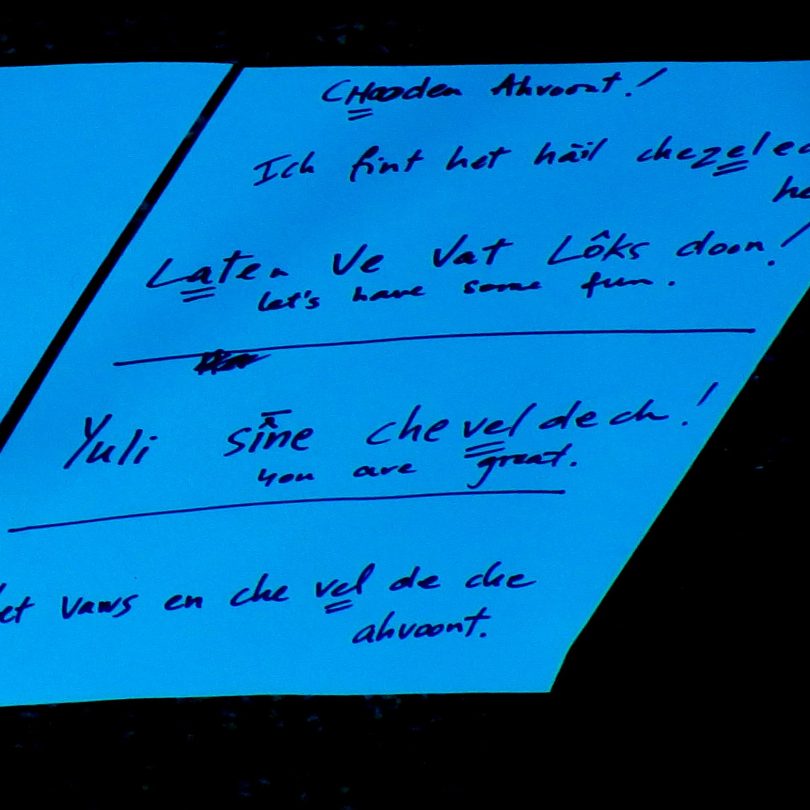 CHooden Ahvoont!
Ich fint het häil chezelec
he
Laten Ve Vat Lôks doon!
let's have some fun.
Yuli sîne cheveldech!
you are great.
et vaws en che vel de che
ahvoont.